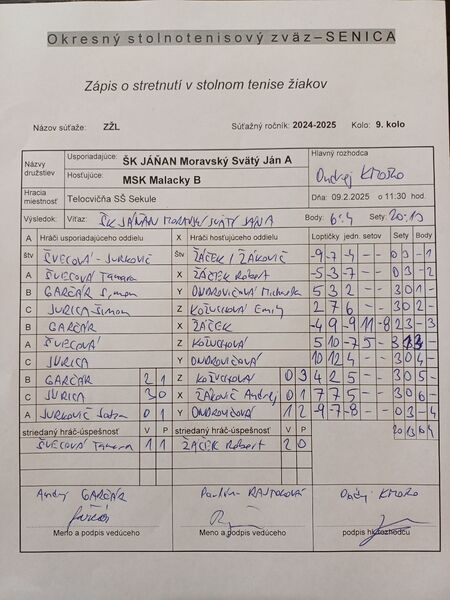 Okresný stolnotenisový zväz–SENICA
Zápis o stretnutí v stolnom tenise žiakov
Názov súťaže: ZŽL Súťažný ročník: 2024-2025 Kolo: 9. kolo
Názvy družstiev Usporiadajúce: ŠK JÁŇAN Moravský Svätý Ján A Hlavný rozhodca
Hosťujúce: MSK Malacky B Ondrej
Hracia miestnosť Telocvičňa SŠ Sekule Dňa: 09.2.2025 o 11:30 hod.
Výsledok: Víťaz: ŠK JÁŇAN MORAVSKÝ SVÄTÝ JÁN A Body: 6:4 Sety: 20:13
A Hráči usporiadajúceho oddielu X Hráči hosťujúceho oddielu Loptičky jedn. setov Sety Body
štv ŠVECOVÁ - JURKOVIČ Štv ŽÁČEK / ŽÁKOVIČ -9 -7 -4 - - 0 3 - 1
A ŠVECOVÁ Tamara X ŽÁČEK Robert -5 -3 -7 - - 0 3 - 2
B GARČÁR Šimon Y ONDROVIČOVÁ 5 3 2 - - 3 0 1 -
C JURICA Šimon Z KOŽUCHOVÁ Emily 2 7 6 - - 3 0 2 -
B GARČÁR X ŽÁČEK -4 9 -9 11 -8 2 3 - 3
A ŠVECOVÁ Z KOŽUCHOVÁ 5 10 -7 5 - 3 1 3 -
C JURICA Y ONDROVIČOVÁ 10 12 4 - - 3 0 4 -
B GARČÁR 2 1 Z KOŽUCHOVÁ 0 3 4 2 5 - - 3 0 5 -
C JURICA 3 0 X ŽÁKOVIČ Andrej 0 1 7 7 5 - - 3 0 6 -
A JURKOVIČ 0 1 Y ONDROVIČOVÁ 1 2 -9 -7 -8 - - 0 3 - 4
striedaný hráč-úspešnosť V P striedaný hráč-úspešnosť V P 20 13 6 4
ŠVECOVÁ Tamara 1 1 ŽÁČEK Robert 2 0
GARČÁR Pavlína RAJTOKOVÁ
Meno a podpis vedúceho Meno a podpis vedúceho podpis hl.rozhodcu